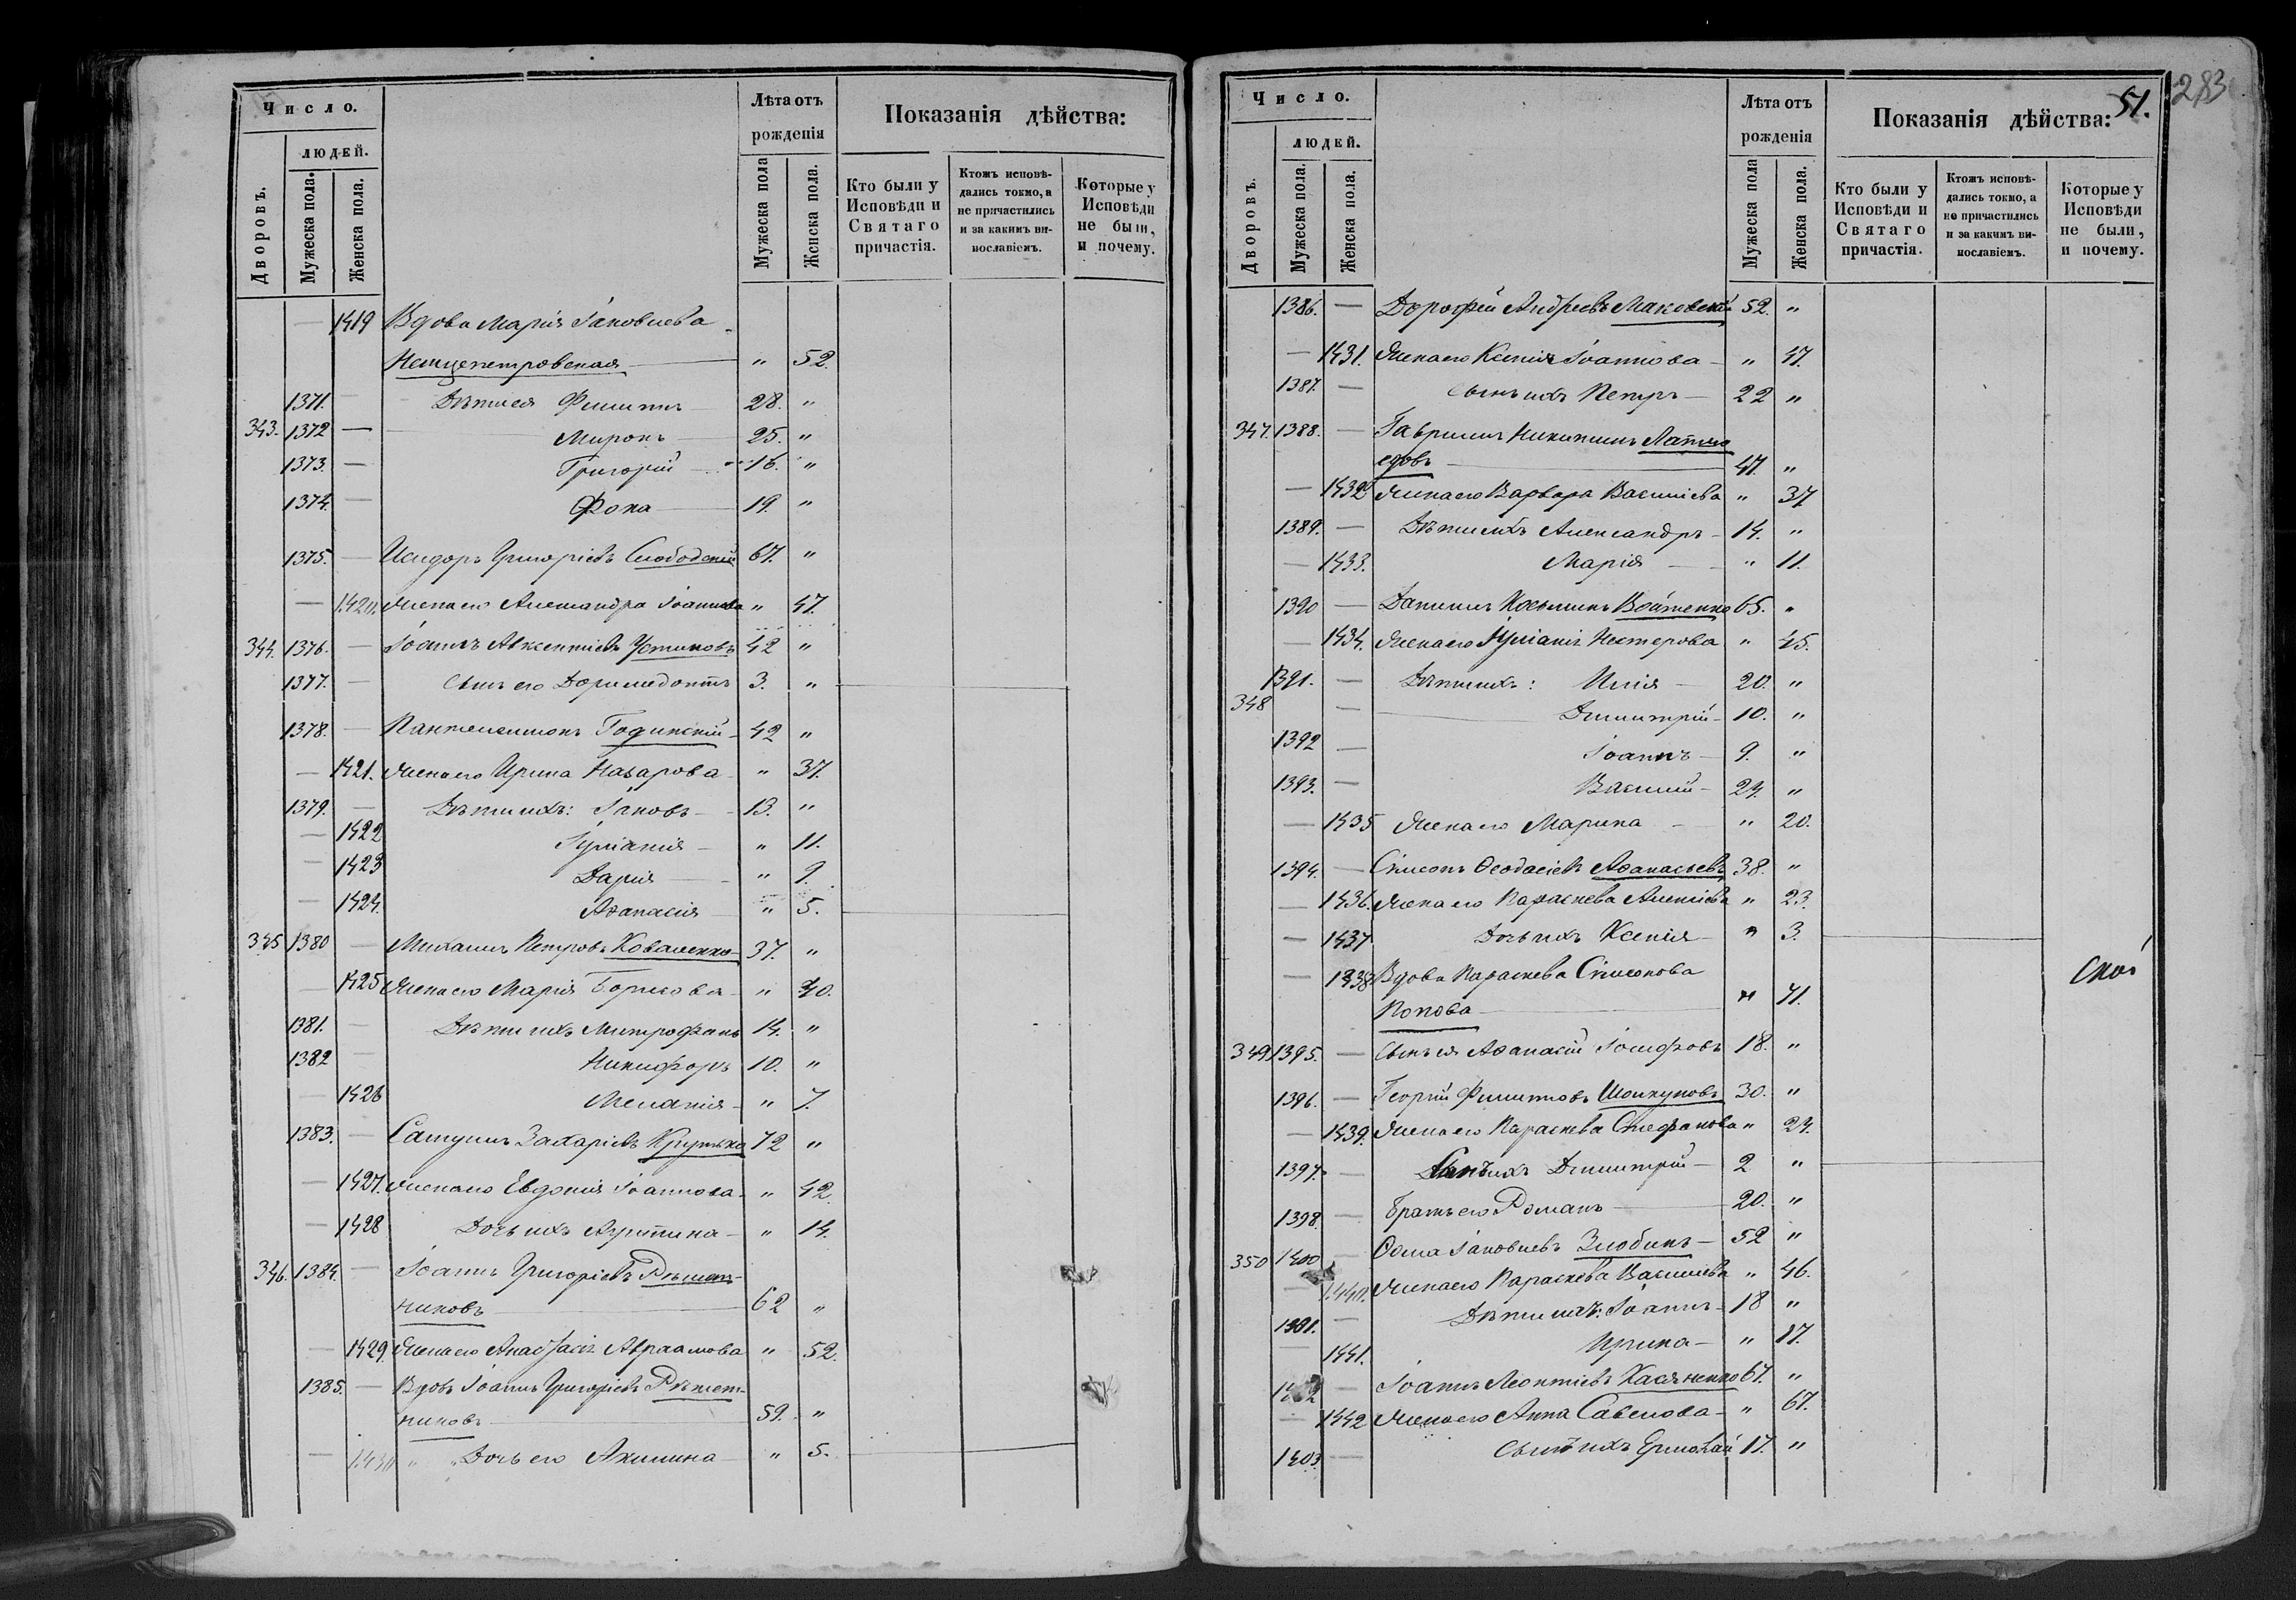 Число.
Дворовъ.
людей.
Мужеска пола.
Женска пола.
Лѣта отъ рожденія
Мужеска пола
Женска пола.
Показанія дѣйства:
Кто были у Исповѣди и Святаго причастія.
Ктожъ исповѣдались токмо, а не причастились и за какимъ винославіемъ.
Которые у Исповѣди не были, и почему.
1419 Вдова Марія Іаковлева
— " 52.
1371. — Дѣти ея Филиппъ 28. "
343. 1372 — Миронъ 25. "
1373. — Григорій — 16. "
1374. — Фока — 19. "
1375. — Исидоръ Григоріевъ Слободскій 67. "
— 1420. Жена его Александра Іоаннова " 47.
344. 1376. — Іоаннъ Авксентіевъ Устиновъ 42 "
1377. — Сынъ его Доримедонтъ 3. "
1378. — Пантелеимонъ Годинскій 42 "
— 1421. Жена его Ирина Назарова " 37.
1379. — Дѣти ихъ: Іаковъ — 13. "
— 1422 Іуліанія — " 11.
— 1423 Дарія — " 9.
— 1424. Аѳанасія " 5.
345 1380 — Михаилъ Петровъ Коваленко 37. "
— 1425 Жена его Марія Борисова " 40.
1381. — Дѣти ихъ Митрофанъ 14. "
1382 — Никифоръ 10. "
— 1426 Меланія — " 7.
1383. — Захаріевъ 72 "
— 1427. Жена его Евдокія Іоаннова " 42.
— 1428 Дочь ихъ — " 14.
346. 1384. — Іоаннъ Григоріевъ Рѣшет-
никовъ — 62 "
— 1429. Жена его Анастасія Авраамова " 52.
1385. — Вдовъ Іоаннъ Григоріевъ Рѣшет-
никовъ — 59. "
— 1430 " Дочь его Акилина " 5.
283
51.
Число.
Дворовъ.
людей.
Мужеска пола.
Женска пола.
Лѣта отъ рожденія
Мужеска пола
Женска пола.
Показанія дѣйства:
Кто были у Исповѣди и Святаго причастія.
Ктожъ исповѣдались токмо, а не причастились и за какимъ винославіемъ.
Которые у Исповѣди не были, и почему.
1386. — Дорофей Андреевъ Маковскій 52. "
— 1431. Жена его Ксенія Іоаннова — " 47.
1387. — Сынъ ихъ Петръ — 22 "
347. 1388. — Гавріилъ Никитинъ
едовъ — 47. "
— 1432 Жена его Варвара Василіева " 37
1389. — Дѣти ихъ Александръ — 14. "
— 1433. Марія — " 11.
1390 — Даніилъ Косьминъ Войтенко 65. "
— 1434. Жена его Іуліанія Нестерова " 45.
1391. — Дѣти ихъ: Илія — 20. "
348 — Димитрій — 10. "
1392 — Іоаннъ — 9. "
1393. — Василій — 24. "
— 1435 Жена его Марина — " 20.
1394. — Симеонъ Ѳеодосіевъ Аѳанасьевъ 38. "
— 1436. Жена его Параскева Алексіева " 23.
— 1437 Дочь ихъ Ксенія — " 3.
— 1438 Вдова Параскева Симеонова
Попова — " 71.
349 1395. — Сынъ ея Аѳанасій Іосифовъ 18. "
1396. — Георгій Филипповъ Шолкуновъ 30. "
— 1439. Жена его Параскева Стефанова " 24.
1397. — Сынъ ихъ Димитрій — 2 "
1398. — Братъ его Романъ — 20. "
350 1400 — Ѳома Іаковлевъ Злобинъ — 52 "
— 1440. Жена его Параскева Василіева " 46.
— Дѣти ихъ: Іоаннъ — 18 "
— 1441. Ирина — " 17.
— Іоаннъ Леонтіевъ Касяненко 67. "
— 1442 Жена его Анна Савелова — " 67.
1403 — Сынъ ихъ Ермолай 17. "